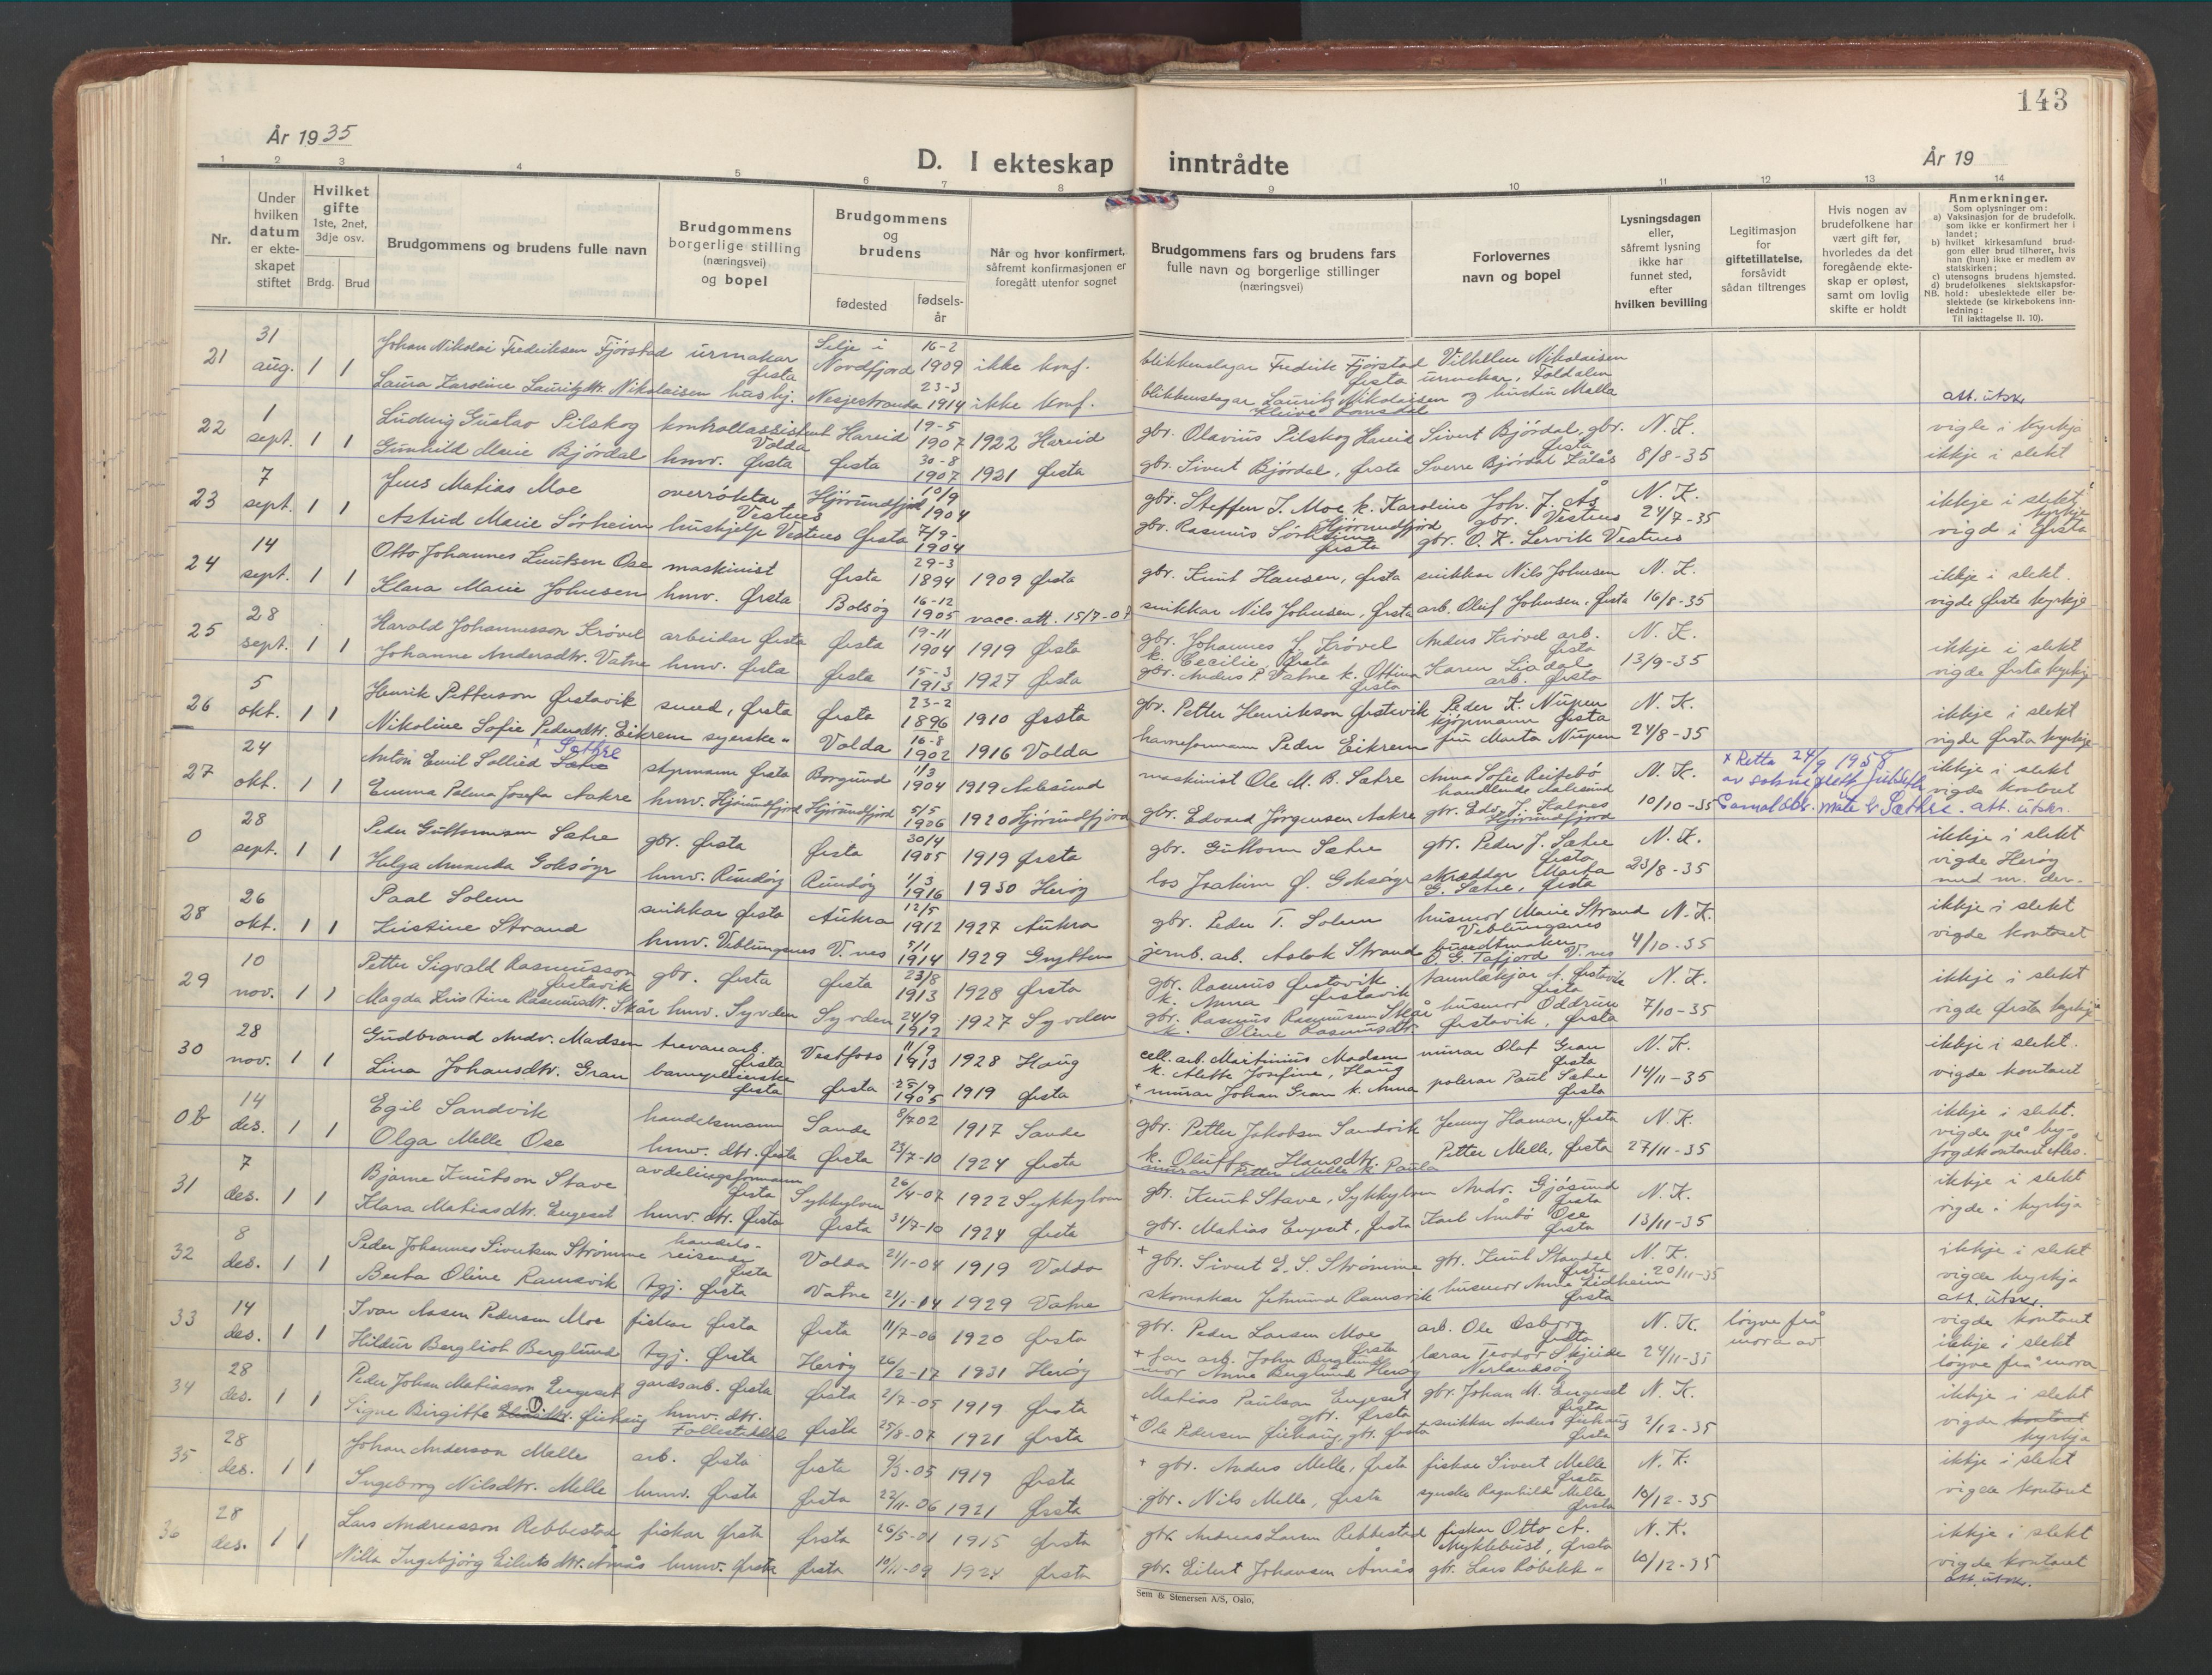 143
År 1935
D. I ekteskap inntrådte
År 19
1 2 3 4 5 6 7 8 9 10 11 12 13 14
Nr.
Under hvilken datum er ekteskapet stiftet
Hvilket gifte 1ste, 2net, 3dje osv.
Brdg. Brud
Brudgommens og brudens fulle navn
Brudgommens borgerlige stilling (næringsvei) og bopel
Brudgommens og brudens
fødested
fødsels-år
Når og hvor konfirmert, såfremt konfirmasjonen er foregått utenfor sognet
Brudgommens fars og brudens fars fulle navn og borgerlige stillinger (næringsvei)
Forlovernes navn og bopel
Lysningsdagen eller, såfremt lysning ikke har funnet sted, efter hvilken bevilling
Legitimasjon for giftetillatelse, forsåvidt sådan tiltrenges
Hvis nogen av brudefolkene har vært gift før, hvorledes da det foregående ekteskap er opløst, samt om lovlig skifte er holdt
Anmerkninger.
Som oplysninger om:
a) Vaksinasjon for de brudefolk. som ikke er konfirmert her i landet;
b) hvilket kirkesamfund brudgom eller brud tilhører, hvis han (hun) ikke er medlem av statskirken;
c) utensogns brudens hjemsted.
d) brudefolkenes slektskapsforhold: ubeslektede eller beslektede (se kirkebokens innledning:
NB. Til iakttagelse II. 10).
21 31 aug. 1 1 Johan Nikolai Fredriksen Fjørstad urmakar Ørsta Selje i Nordfjord 16-2 1909 ikke konf. blikkenslagar Fredrik Fjørstad Ørsta Vilhelm Nikolaisen urmakar, Foldalen
Laura Karoline Lauritzdtr. Nikolaisen hushj. Nesjestranda 23-3 1914 ikke konf. blikkenslagar Lauritz Nikolaisen Kleive Romsdal og hustru Malla att. utskr.
22 1 sept. 1 1 Ludvig Gustav Pilskog kontrollassistent Volda Hareid 19-5 1907 1922 Hareid gbr. Olavius Pilskog Hareid Sivert Bjørdal, gbr. Ørsta N. K. vigde i kyrkja
Gunhild Marie Bjørdal hmv. Ørsta Ørsta 30-8 1907 1921 Ørsta gbr. Sivert Bjørdal, Ørsta Sverre Bjørdal 8/8-35 ikkje i slekt
23 7 sept. 1 1 Jens Matias Moe overrøktar Vestnes Hjørundfjord 10/9 1904 gbr. Steffen J. Moe k. Karoline Hjørundfjord Joh. J. Ås gbr. Vestnes N. K. 24/7-35 ikkje i slekt
Astrid Marie Sørheim hushjelp Vestnes Ørsta 7/9- 1904 gbr. Rasmus Sørheim Ørsta gbr. O. K. Lervik Vestnes vigd i Ørsta kyrkje
24 14 sept. 1 1 Otto Johannes Knutsen Ose maskinist Ørsta 29-3 1894 1909 Ørsta gbr. Knut Hansen, Ørsta snikkar Nils Johnsen N. K. ikkje i slekt.
Klara Marie Johnsen hmv. Ørsta Bolsøy 16-12 1905 vacc. att. 15/7-07 snikkar Nils Johnsen, Ørsta arb. Oluf Johnsen, Ørsta 16/8-35 vigde Ørsta kyrkje
25 28 sept. 1 1 Harald Johannesson Krøvel arbeidar Ørsta Ørsta 19-11 1904 1919 Ørsta gbr. Johannes J. Krøvel k. Cecilie, Ørsta Anders Krøvel arb. Ørsta N. K. ikkje i slekt
Johanne Andersdtr. Vatne hmv. Ørsta Ørsta 15-3 1913 1927 Ørsta gbr. Anders P. Vatne k. Ottina Ørsta Karen Liadal arb. Ørsta 13/9-35 vigde Ørsta kyrkje
26 5 okt. 1 1 Henrik Petterson Ørstavik smed, Ørsta Ørsta 23-2 1896 1910 Ørsta gbr. Petter Henrikson Ørstavik Peder K. Nupen kjøpmann Ørsta N. K. ikkje i slekt
Nikoline Sofie Pedersdtr. Eikrem syerske " Volda 16-8 1902 1916 Volda havneformann Peder Eikrem fru Marta Nupen 24/8-35 vigde Ørsta kyrkje
27 24 okt. 1 1 Anton Emil Sollied Sætre Sæthre styrmann Ørsta Borgund 1/3 1904 1919 Aalesund maskinist Ole M. B. Sætre Anna Sofie Reitebø handlende Aalesund N. K. x Retta 24/9 1958 ikkje i slekt vigde kontoret
Emma Palma Josefa Aakre hmv. Hjørundfjord Hjørundfjord 5/5 1906 1920 Hjørundfjord gbr. Edvard Jørgensen Aakre gbr. Edv. J. Kalnes Hjørundfjord 10/10-35 att. utskr.
0 28 sept. 1 1 Peder Guttormsen Sætre gbr. Ørsta Ørsta 30/4 1905 1919 Ørsta gbr. Guttorm Sætre gbr. Peder J. Sætre Ørsta N. K. ikkje i slekt
Helga Amanda Goksøyr hmv. Rundøy Rundøy 1/3 1916 1930 Herøy los Joakim Ø. Goksøyr skræddar Marta G. Sætre, Ørsta 23/8-35 vigde Herøy med nr. der.
28 26 okt. 1 1 Paal Solem snikkar Ørsta Aukra 12/5 1912 1927 Aukra gbr. Peder T. Solem husmor Marie Strand Veblungsnes N. K. ikkje i slekt
Kristine Strand hmv. Veblungsnes V. nes 5/1 1914 1929 Grytten jernb. arb. Aslak Strand O. G. Tafjord V. nes 4/10-35 vigde kontoret
29 10 nov. 1 1 Petter Sigvald Rasmusson Ørstavik gbr. Ørsta Ørsta 23/8 1913 1928 Ørsta gbr. Rasmus Ørstavik k. Anna Ørstavik tannlækjar A. Ørstavik Ørsta N. K. ikkje i slekt
Magda Kristine Rasmusdt. Skår hmv. Syvden Syvden 24/9 1912 1927 Syvden gbr. Rasmus Rasmussen Skår k. Oline Rasmusdtr. husmor Oddrun Ørstavik, Ørsta 7/10-35 vigde Ørsta kyrkje
30 28 nov. 1 1 Gudbrand Andr. Madsen trevarearb. Ørsta Vestfoss 11/9 1913 1928 Haug cell. arb. Martinius Madsen k. Alette Josefine, Haug murar Olaf Gran Ørsta N. K. ikkje i slekt.
Lina Johansdtr. Gran barnepleierske Ørsta Ørsta 25/9 1905 1919 Ørsta + murar Johan Gran k. Anna polerar Paul Sætre Ørsta 14/11-35 vigde kontoret
0b 14 des. 1 1 Egil Sandvik handelsmann Sande 8/7 02 1917 Sande gbr. Petter Jakobsen Sandvik k. Oluffa Hansdtr. Jenny Hamar, Ørsta N. K. ikkje i slekt.
Olga Melle Ose hmv. dtr. Ørsta Ørsta 23/7-10 1924 Ørsta murar Petter Melle k. Paula Petter Melle, Ørsta 27/11-35 vigde på by-fogdkontoret Åles.
31 7 des. 1 1 Bjarne Knutson Stave avdelingsformann Ørsta Sykkylven 26/4-07 1922 Sykkylven gbr. Knut Stave, Sykkylven Andr. Gjøsund Ørsta N. K. ikkje i slekt
Klara Matiasdtr. Engeset hmv. dtr. Ørsta Ørsta 31/7-10 1924 Ørsta gbr. Mathias Engeset, Ørsta Karl Aubø Ose Ørsta 13/11-35 vigde i kyrkja
32 8 des. 1 1 Peder Johannes Sivertsen Strømme handels-reisende Ørsta Volda 21/1-04 1919 Volda + gbr. Sivert E. S. Strømme gbr. Knut Standal Ørsta N. K. ikkje i slekt
Berta Oline Ramsvik tgj. Ørsta Vatne 21/1-14 1929 Vatne skomakar Jetmund Ramsvik husmor Anna Lidheim Ørsta 20/11-35 vigde kyrkja att. utskr.
33 14 des. 1 1 Ivar Aasen Pedersen Moe fiskar Ørsta Ørsta 11/7-06 1920 Ørsta gbr. Peder Larsen Moe Ørsta arb. Ole Osbjørg Ørsta N. K. løyve frå mora av vigde kontoret
Hildur Bergliot Berglund tgj. Ørsta Herøy 26/2-17 1931 Herøy + far arb. John Berglund mor Anna Berglund Herøy lærar Teodor Skjeide Nerlandsøy 24/11-35 ikkje i slekt løyve frå mora
34 28 des. 1 1 Peder Johan Matiasson Engeset gardsarb. Ørsta Ørsta 2/7-05 1919 Ørsta Mathias Paulson Engeset gbr. Ørsta gbr. Johan M. Engeset Ørsta N. K. ikkje i slekt
Signe Birgitte O. Ørskaug hmv. dtr. Follestaddal Ørsta 25/8-07 1921 Ørsta + Ole Pedersen Ørskaug, gbr. Ørsta snikkar Anders Ørskaug Ørsta 2/12-35 vigde kontoret kyrkja
35 28 des. 1 1 Johan Anderson Melle arb. Ørsta Ørsta 9/3-05 1919 Ørsta + gbr. Anders Melle, Ørsta fiskar Sivert Melle Ørsta N. K. ikkje i slekt
Ingeborg Nilsdtr. Melle hmv. Ørsta Ørsta 22/11-06 1921 Ørsta gbr. Nils Melle, Ørsta syerske Ragnhild Melle Ørsta 10/12-35 vigde kontoret
36 28 des. 1 1 Lars Andreasson Rebbestad fiskar Ørsta Ørsta 26/5-01 1915 Ørsta gbr. Andreas Larsen Rebbestad fiskar Otto A. Myklebust, Ørsta N. K. ikkje i slekt
Nilla Ingebjørg Eilertsdtr. Åmås hmv. Ørsta Ørsta 10/11-09 1924 Ørsta gbr. Eilert Johansen Åmås gbr. Lars Røbekk " 10/12-35 vigde kontoret att. utskr.
Sem & Stenersen A/S, Oslo,